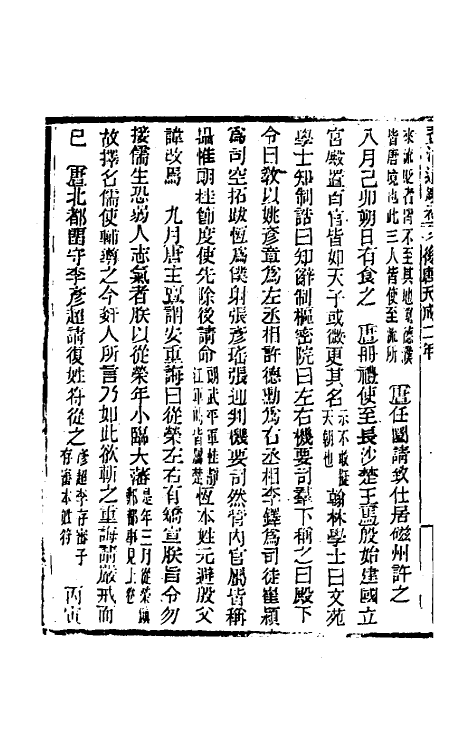 來流貶者謂不至其地
皆唐境也此三人皆使至流所 唐任圜請致仕居磁州許之
八月己卯朔日有食之 唐冊禮使至長沙楚王馬殷始建國立
宮殿置百官皆如天子或微更其名示不敢擬天朝也翰林學士曰文苑
學士知制誥曰知辭制樞密院曰左右機要司羣下稱之曰殿下
令曰教以姚彥章爲左丞相許德勳爲右丞相李鐸爲司徒崔穎
爲司空拓跋恆爲僕射張彥瑤張迎判機要司然管內官屬皆稱
攝惟朗桂節度使先除後請命朗武平軍桂靜江軍時皆屬楚恆本姓元避殷父
諱改焉 九月唐主亶謂安重誨曰從榮左右有矯宣朕旨令勿
接儒生恐弱人志氣者朕以從榮年小臨大藩是年三月從榮鎮鄴都事見上卷
故擇名儒使輔導之今奸人所言乃如此欲斬之重誨請嚴戒而
已 唐北都留守李彥超請復姓符從之彥超李存審子存審本姓符 丙寅